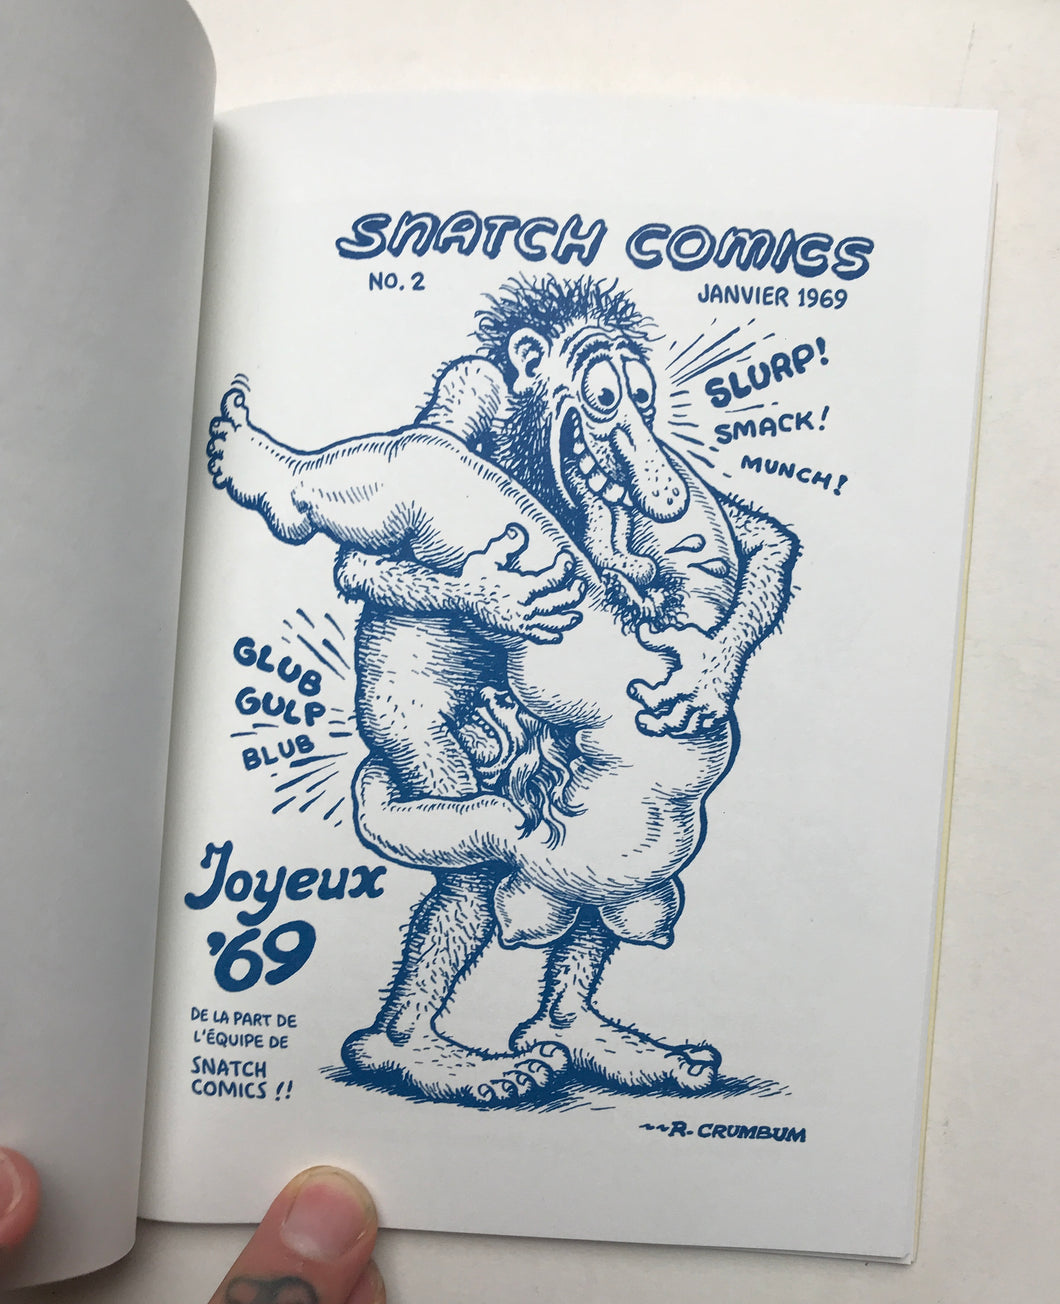 SNATCH COMICS
NO. 2
JANVIER 1969
SLURP!
SMACK!
MUNCH!
GLUB
GULP
BLUB
Joyeux
'69
DE LA PART DE
L'ÉQUIPE DE
SNATCH
COMICS !!
~~R. CRUMBUM